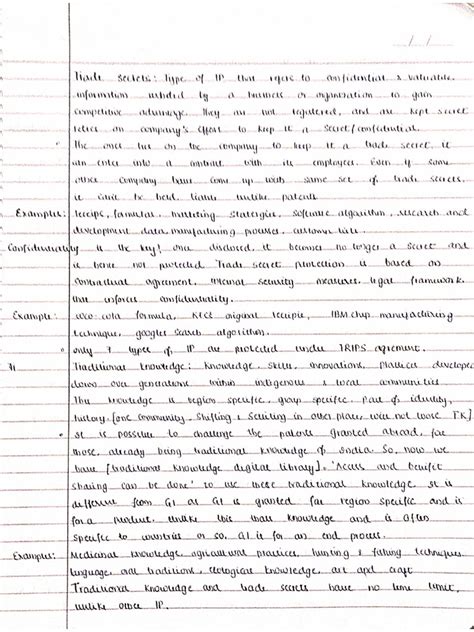 / /
Trade secrets: Type of IP that refers to confidential & valuable
information by a business or organisation to gain
competitive advantage. They are not registered, and are kept secret
relies on company's effort to keep it a secret/confidential.
The ones lies on the company to keep it a trade secret. it
can enter into a contract with its employees. Even if some
other company have come up with same set of trade secrets,
it can't be held liable unlike patents
Examples: recipes, formulas, marketing strategies, software algorithm, research and
development data, manufacturing processes, customer lists.
Confidentiality is the key! once disclosed, it becomes no longer a secret and
is hence not protected. Trade secret protection is based on
contractual agreement, internal security measures, legal framework
that enforces confidentiality.
Example: coco-cola formula, KFC's original recipie, IBM chip manufacturing
technique, googles search algorithm.
• only 7 types of IP are protected under TRIPS agreement.
Traditional knowledge: Knowledge, skills, innovations, practices developed
down over generations within indigenous & local communities
This knowledge is region specific, group specific, part of identity,
history. [one community, shifting & settling in other place, will not loose TK]
• It is possible to challenge the patents granted abroad, for
those, already being traditional knowledge of India. So, now we
have [traditional knowledge digital library]. 'Access and benefit
sharing can be done' to use these traditional knowledge. It is
different from GI as GI is granted for region specific and is
for a product. unlike this that's knowledge and is often
specific to countries or so, GI is for an end process.
Examples: Medicinal knowledge, agricultural practices, hunting & fishing techniques
language, oral traditions, ecological knowledge, art and craft
Traditional knowledge and trade secrets have no time limit,
unlike other IP.